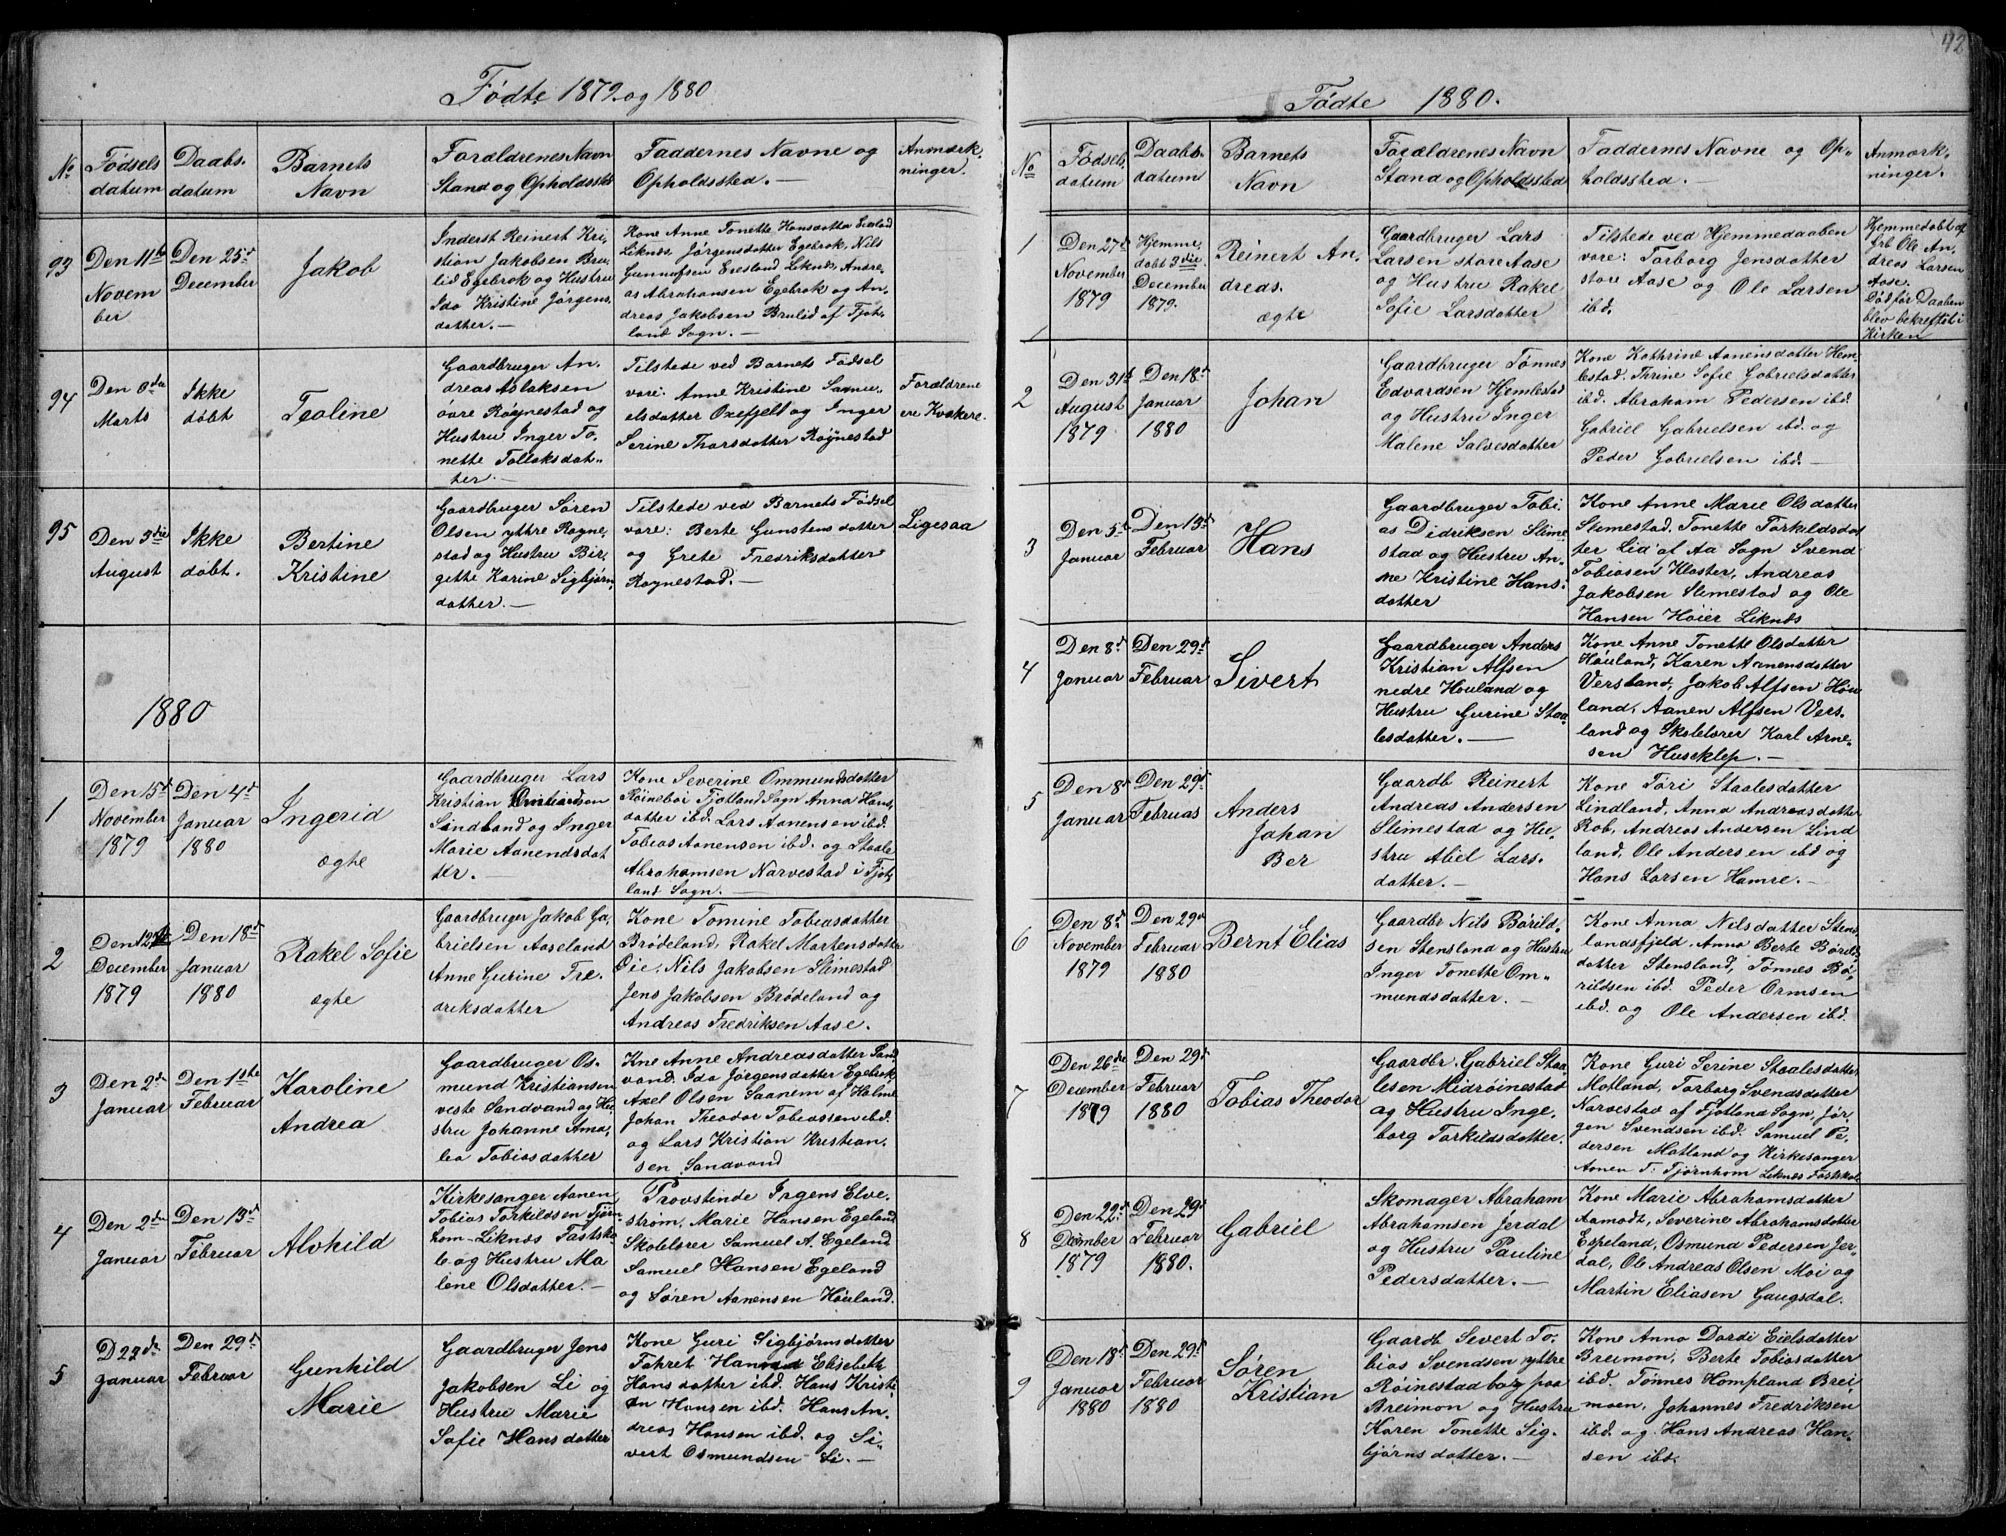 Fødte 1879 og 1880
No
Fødsels
datum
Daabs.
datum
Barnets
Navn
Forældrenes Navn
Stand og Opholdssted
Faddernes Navne og
Opholdssted. —
Anmærk-
ninger.
93
Den 11te
Novem
ber
Den 25de
December
Jakob
Inderst Reinert Kri-
stian Jakobsen Bru-
lid Egebrok og Hustru
Ida Kristine Jørgens,
datter. —
Kone Anne Tonette Hansdatter Eesland
Liknes, Jørgensdatter Egebrok, Nils
Gunnufsen Eesland Liknes, Andre-
as Abrahamsen Egebrok og An-
dreas Jakobsen Brulid af Fjot-
land Sogn. —
94
Den 8de
Marts
Ikke
døbt
Teoline
Gaardbruger An-
dreas Aslaksen
øvre Røgnestad og
Hustru Inger To-
nette Tollaksdat-
ter. —
Tilstede ved Barnets Fødsel
vore: Anne Kristine Samu-
elsdatter Oxefjelt og Inger
Serine Thorsdatter Røynestad
Forældrene
ere Kvækere.
95
Den 3die
August
Ikke
døbt.
Bertine
Kristine
Gaardbruger Søren
Olsen yttre Røgne-
stad og Hustru Bir-
gitte Karine Sigbjørn,
datter. —
Tilstede ved Barnets Fødsel
vore: Berte Gunstensdatter
og Grete Fredriksdatter
Røynestad. —
Ligesaa
1880
1
Den 15d
November
1879
Den 4de
Januar
1880
Ingerid
ægte
Gaardbruger Lars
Kristian Kristiansen
Sindland og Inger
Marie Aanendsdat
ter. —
Kone Severine Ommundsdatter
Røinebø Fjotland Sogn Anna Hans,
datter ibd. Lars Aanensen ibd.
Tobias Aanensen ibd. og Staale
Abrahamsen Narvestad i Fjot,
land Sogn. —
2
Den 12te
December
1879
Den 18de
Januar
1880
Rakel Sofie
ægte
Gaardbruger Jakob Ga,
brielsen Aaseland
Anne Gurine Fre-
driksdatter
Kone Tomine Tobiasdatter
Brødeland, Rakel Martensdatter
Øie, Nils Jakobsen Slimestad
Jens Jakobsen Brødeland og
Andreas Fredriksen Aase.
3
Den 2de
Januar
Den 1ste
Februar
Karoline
Andrea
Gaardbruger Os-
mund Kristiansen
veste Sandvand og Hu-
stru Johanne Ama,
lea Tobiasdatter
Kne Anne Andreasdatter Sand
vand, Ida Jørgensdatter Egebrok
Axel Olsen Saanem af Halme
Johan Theodor Tobiassen ibd.
og Lars Kristian Kristian,
sen Sandvand
4
Den 2de
Januar
Den 15d
Februar
Alvhild
Kirkesanger Aanen
Tobias Torkildsen Tjørn
hom-Liknes Fastsko-
le og Hustru Ma
lene Olsdatter. —
Provstinde Irgens Elve-
strøm, Marie Hansen Egeland
Skolelærer Samuel A. Egeland
Samuel Hansen Egeland
og Søren Aanensen Houland.
5
D 22de
Januar
Den 29d
Februar
Gunhild
Marie
Gaardbruger Jens
Jakobsen Li og
Hustru Marie
Sofie Hansdatter
Kone Guri Sigbjørnsdatter
Fahret Elisebeth
Hansdatter ibd. Hans Kristi-
an Hansen ibd. Hans An-
dreas Hansen ibd. og Si-
vert Osmundsen Li. —
42
Fødte 1880.
No
Fødsels,
datum
Daabs.
datum
Barnets
Navn
Forældrenes Navn
Stand og Opholdssted
Faddernes Navne og Op-
holdssted. —
Anmærk-
ninger.
1
Den 27d
November
1879
Hjemme,
døbt 3die
December
1879.
Reinert An,
dreas.
ægte
Gaardbruger Lars
Larsen store Aase
og Hustru Rakel
Sofie Larsdatter
Tilstede ved Hjemmedaaben
vore: Torborg Jensdatter
store Aase og Ole Larsen
ibd.
Hjemmedøbt af
Frb Ole An,
dreas Larsen
Aase.
Død før Daaben
blev bekreftet i
Kirken
2
Den 31d
August
1879
Den 18d
Januar
1880
Johan
Gaardbruger Tønnes
Edvardsen Hemlestad
og Hustru Inger
Malene Salvesdatter
Kone Kathrine Aanensdatter Hem-
lestad, Thrine Sofie Gabrielsdatter
ibd. Abraham Pedersen ibd
Gabriel Gabrielsen ibd. og
Peder Gabrielsen ibd. —
3
Den 5d
Januar
Den 15d
Februar
Hans
Gaardbruger Tobi-
as Didriksen Slime-
stad og Hustru An-
ne Kristine Hans-
datter
Kone Anne Marie Olsdatter
Slimestad, Tonette Torkildsdat
ter Lid af Aa Sogn Svend
Tobiasen Kloster, Andreas
Jakobsen Slimestad og Ole
Hansen Høier Liknes
4
Den 8d
Januar
Den 29d
Februar
Sivert
Gaardbruger Anders
Kristian Alfsen
nedre Houland og
Hustru Gurine Staa-
lesdatter. —
Kone Anne Tonette Olsdatter
Houland, Karen Aanensdatter
Versland, Jakob Alfsen Hou-
land, Aanen Alfsen Vers-
land og Skolelærer Karl Arne-
sen Huseklep. —
5
Den 8d
Januar
Den 29d
Februar
Anders
Johan
Ber
Gaardb Reinert
Andreas Andersen
Slimestad og Hu-
stru Abiel Lars-
datter. —
Kone Tori Staalesdatter
Lindland, Anna Andreasdatter
Rob, Andreas Andersen Lind
land, Ole Andersen ibd og
Hans Larsen Hamre. —
6
Den 8d
November
1879
Den 29d
Februar
1880
Bernt Elias
Gaardbr Nils Børild-
sen Stensland og Hustru
Inger Tonette Om-
mundsdatter. —
Kone Anna Nilsdatter Stens
landsfjeld, Anna Berte Børilds
datter Stensland, Tønnes Bø-
rildsen ibd. Peder Ormsen
ibd. og Ole Andersen ibd.
7
Den 26de
December
1879
Den 29d
Februar
1880
Tobias Theodor
Gaardbr. Gabriel Staa-
lesen Midrøinestad
og Hustru Inge,
borg Torkildsdatter.
Kone Guri Serine Staalesdatter
Motland, Torborg Svendsdatter
Narvestad af Fjotland Sogn, Jør
gen Svendsen ibd. Samuel Pe-
dersen Motland og Kirkesanger
Aanen T. Tjørnhom Liknes Fastskole
8
Den 22d
December
1879
Den 29d
Februar
1880.
Gabriel
Skomager Abraham
Abrahamsen Jerdal
og Hustru Pauline
Pedersdatter. —
Kone Marie Abrahamsdatter
Aamodt, Severine Abrahamsdatter
Espeland, Osmund Pedersen Jer-
dal, Ole Andreas Olsen Moi og
Martin Eliasen Gaugsdal.
9
Den 18d
Januar
1880
Den 29d
Februar
1880
Søren
Kristian
Gaardb Severt To-
bias Svendsen yttre
Røinestad borg paa
Breimon og Hustru
Karen Tonette Sig-
bjørnsdatter. —
Kone Anna Dordi Eielsdatter
Breimon, Berte Tobiasdatter
ibd. Tønnes Hompland Brei-
moen, Johannes Fredriksen
ibd. og Hans Andreas Han-
sen ibd.